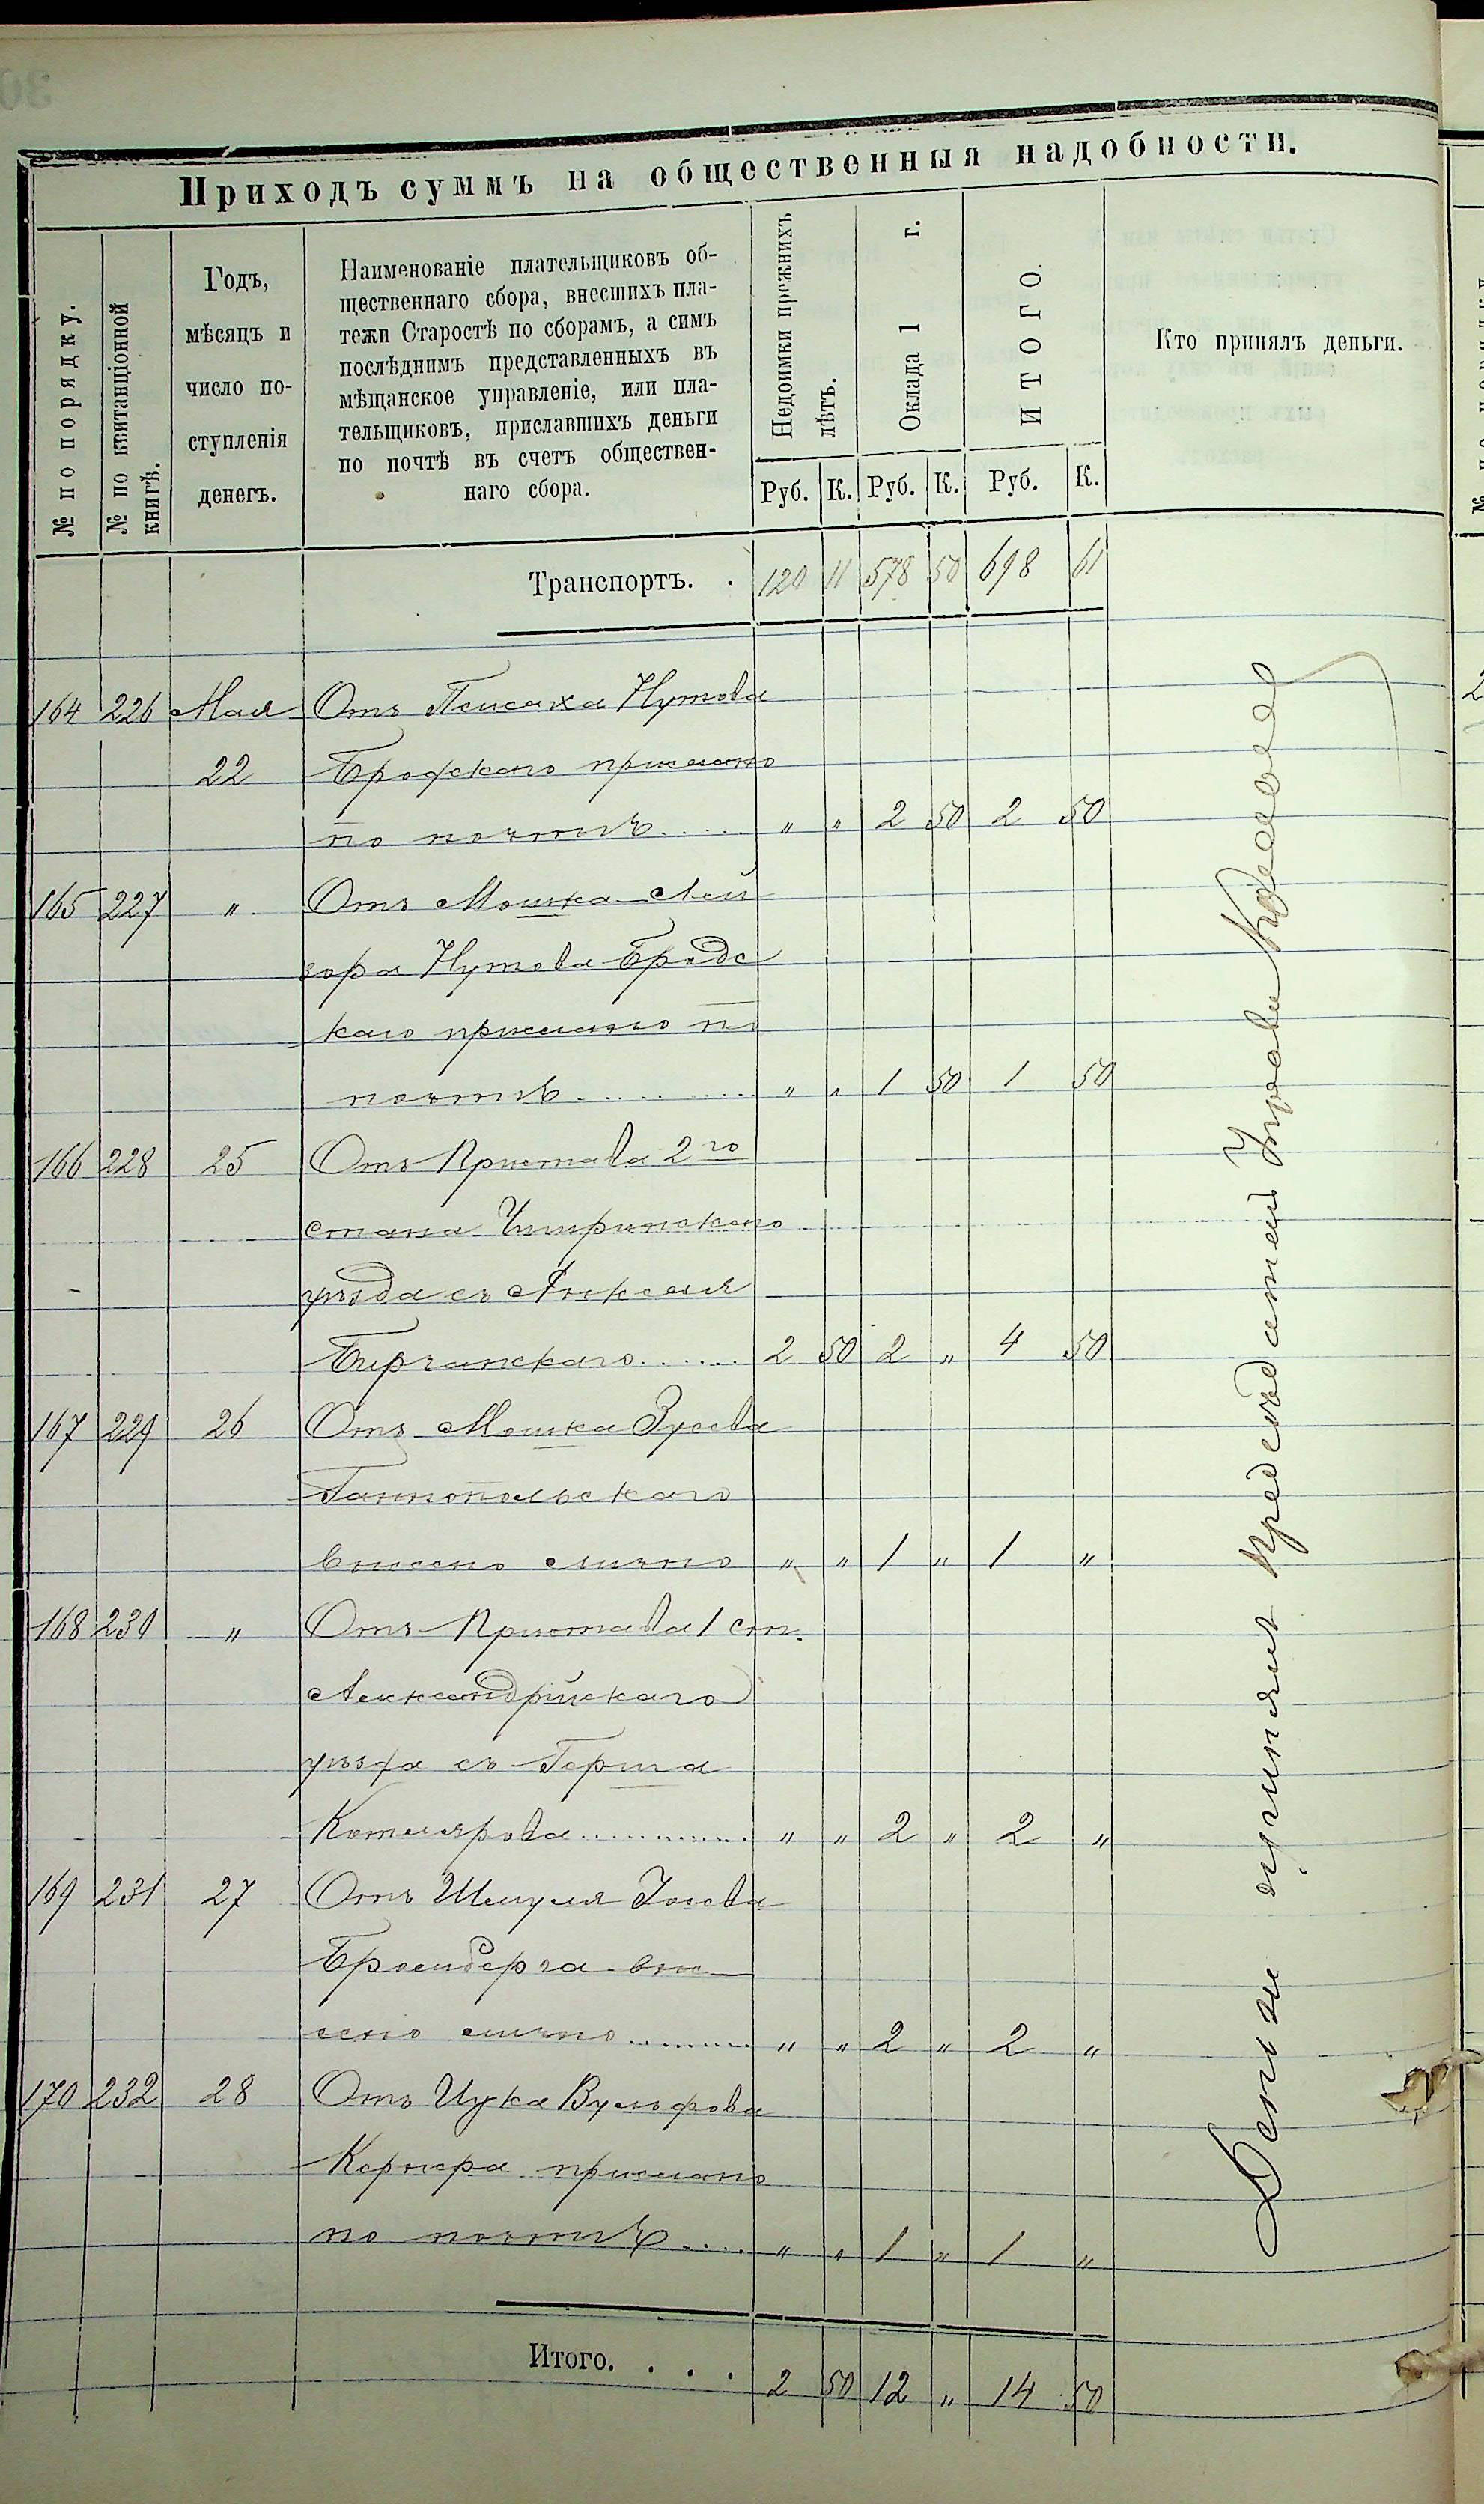 Приходъ суммъ на общественныя надобности.
№ по порядку.
№ по квитанціонной
книгѣ.
Годъ,
мѣсяцъ и
число по-
ступленія
денегъ.
Наименованіе плательщиковъ об-
щественнаго сбора, внесшихъ пла-
тежи Старостѣ по сборамъ, а симъ
послѣднимъ представленныхъ въ
мѣщанское управленіе, или пла-
тельщиковъ, приславшихъ деньги
по почтѣ въ счетъ обществен-
наго сбора.
Недоимки прежнихъ
лѣтъ.
Оклада 1 г.
ИТОГО.
Кто принялъ деньги.
Руб. К. Руб. К. Руб. К.
Транспортъ. . 120 11 578 50 698 61
164 226 Мая Отъ Пейсаха Нутова
22 Бродскаго прислано
по почтѣ..... " " 2 50 2 50
165 227 " Отъ Мошка-Лей
зора Нутова Бродс
каго прислано по
почтѣ........... " " 1 50 1 50
166 228 25 Отъ Пристава 2го
стана Чигринскаго
уѣзда съ Анкеля
Бирчанскаго...... 2 50 2 " 4 50
167 229 26 Отъ Мошка Зусева
Ганнопольскаго
внесено лично " " 1 " 1 "
168 230 " Отъ Пристава 1 ст.
Александрійскаго
уѣзда съ Герша
Котлярова............ " " 2 " 2 "
169 231 27 Отъ Шмуля Іосева
внe-
сено лично......... " " 2 " 2 "
170 232 28 Отъ Ицка Вульфова
Кернера прислано
по почтѣ.... " " 1 " 1 "
Итого. . . . 2 50 12 " 14 50
Деньги принялъ Предсѣдатель Управы